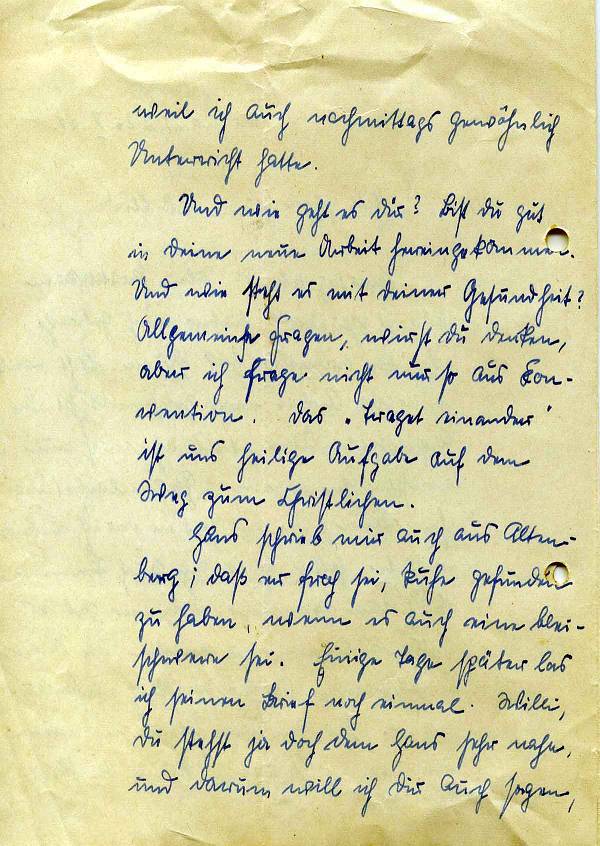 weil ich auch nachmittags gewöhnlich
Unterricht hatte.
Und wie geht es dir? Bist du gut
in deine neue Arbeit hereingekommen.
Und wie steht es mit deiner Gesundheit?
Allgemeine Fragen, wirst du denken,
aber ich frage nicht nur so aus Kon-
vention. Das „Traget einander“
ist uns heilige Aufgabe auf dem
Weg zum Christlichen.
Hans schrieb mir auch aus Alten-
berg, daß er froh sei, Ruhe gefunden
zu haben, wenn es auch eine blei-
schwere sei. Einige Tage später las
ich seinen Brief noch einmal. Willi,
du stehst ja doch dem Hans sehr nahe,
und darum will ich dir auch sagen,